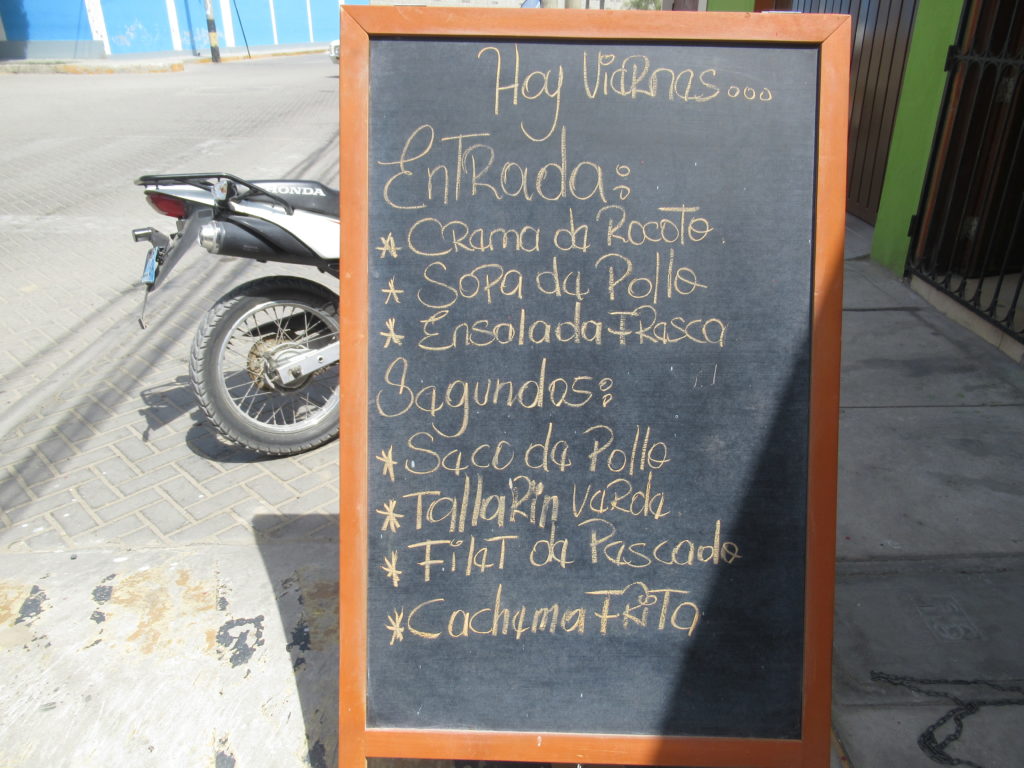 HONDA
Hoy Viernes...
Entrada:
* Crema de Rocoto
* Sopa de Pollo
* Ensalada Fresca
Segundos:
* Seco de Pollo
* Tallarin Verde
* Filet de Pescado
* Cachema Frita